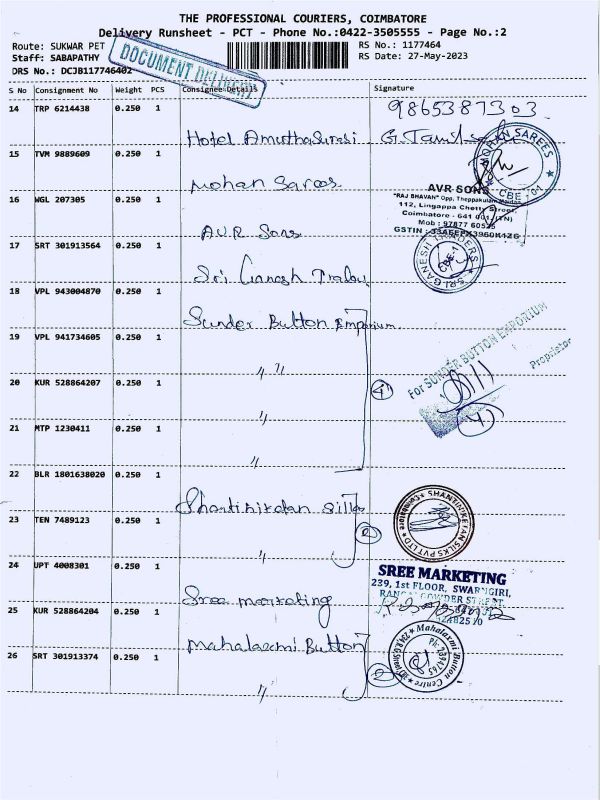 THE PROFESSIONAL COURIERS, COIMBATORE
Delivery Runsheet - PCT - Phone No.:0422-3505555 - Page No.:2
Route: SUKWAR PET
RS No.: 1177464
Staff: SABAPATHY
RS Date: 27-May-2023
DRS No.: DCJB117746402
DOCUMENT DELIVERY
S No Consignment No Weight PCS Consignee Details Signature
14 TRP 6214438 0.250 1
9865387303
Hotel Amuthasurabi
15 TVM 9889609 0.250 1
Mohan Sarees
MOHAN SAREES
CBE - 01
16 WGL 207305 0.250 1
A.V.R Sons
AVR SONS
"RAJ BHAVAN" Opp. Theppakulam Maidan
112, Lingappa Chetty Street,
Coimbatore - 641 001. (TN)
Mob : 97877 60525
GSTIN :
17 SRT 301913564 0.250 1
Sri Ganesh Traders
SRI GANESH TRADERS
CBE-1
18 VPL 943004870 0.250 1
Sunder Button Emporium
19 VPL 941734605 0.250 1
" "
For SUNDER BUTTON EMPORIUM
Proprietor
20 KUR 528864207 0.250 1
"
4
4
21 MTP 1230411 0.250 1
"
22 BLR 1801638020 0.250 1
Shantinikatan Silks
SHANTINIKETAN SILKS PVT LTD
Coimbatore
23 TEN 7489123 0.250 1
"
2
24 UPT 4008301 0.250 1
Sree marketing
SREE MARKETING
239, 1st FLOOR, SWARNGIRI,
25 KUR 528864204 0.250 1
Mahalaxmi Button
Mahalaxmi Button Centre
Ph: 2394765
26 SRT 301913374 0.250 1
"
2